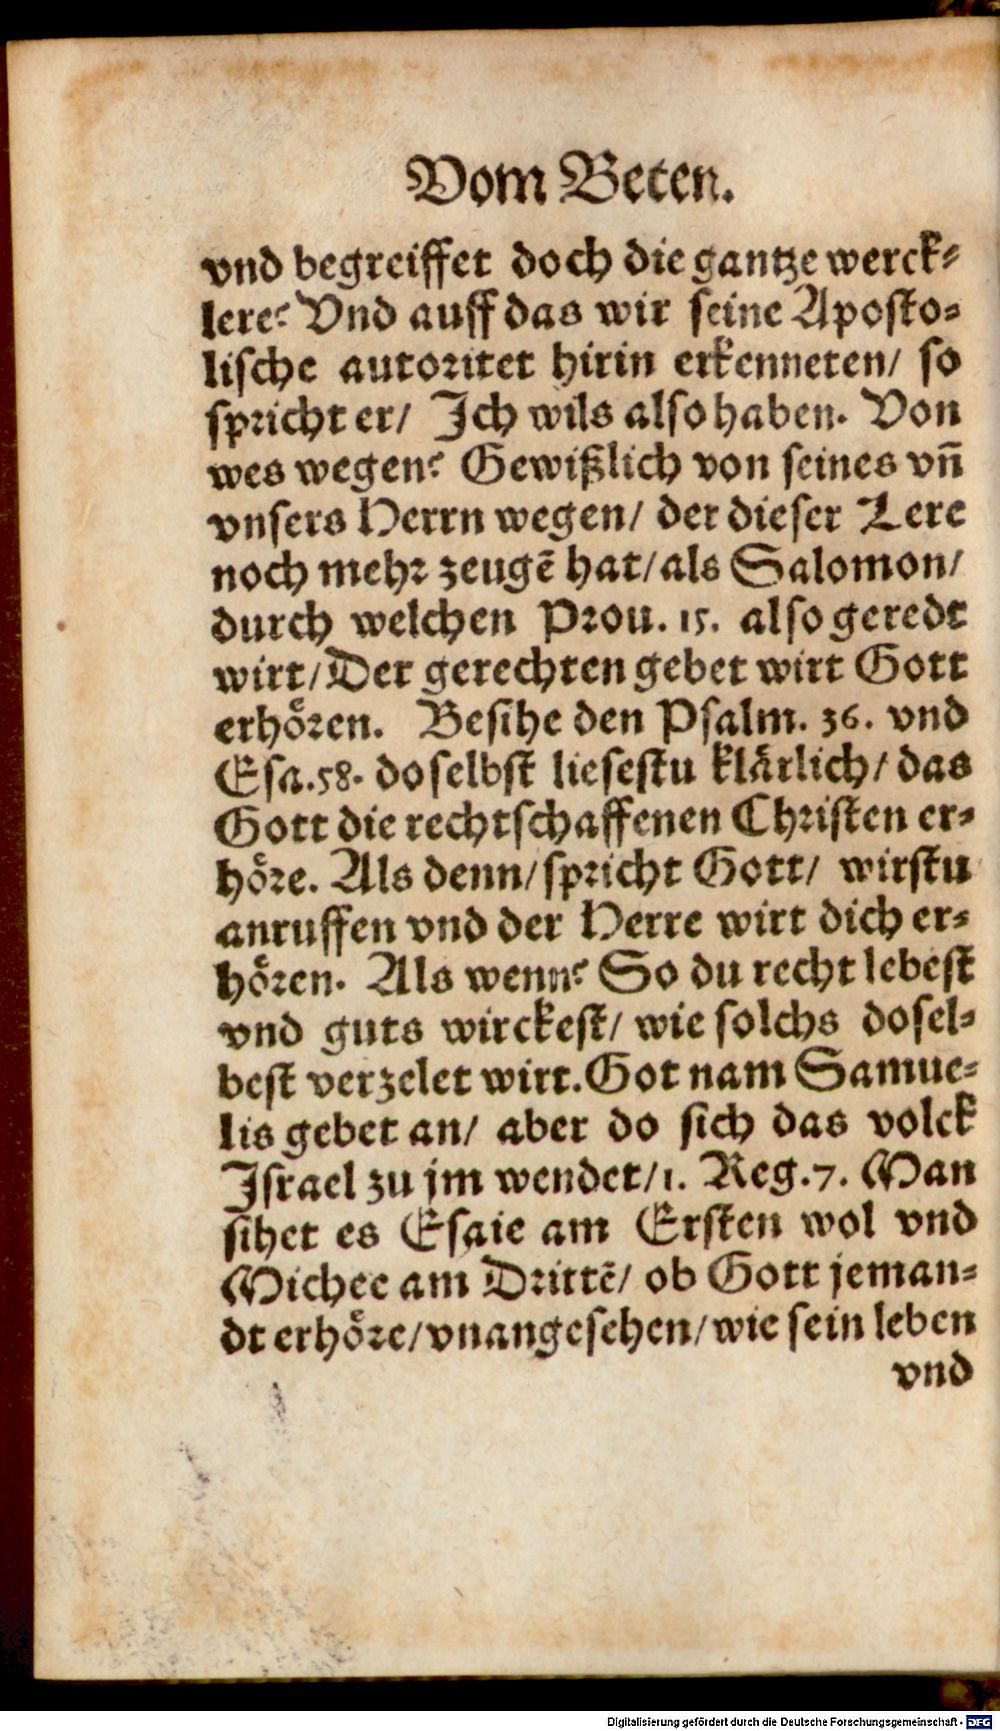 Vom Beten.
vnd begreiffet doch die gantze werck⸗
lere? Vnd auff das wir seine Aposto⸗
lische autoritet hirin erkenneten/ so
spricht er/ Ich wils also haben. Von
wes wegen? Gewißlich von seines vñ
vnsers Herrn wegen/ der dieser Lere
noch mehr zeugē hat/ als Salomon/
durch welchen Prou. 15. also geredt
wirt/ Der gerechten gebet wirt Gott
erhoͤren. Besihe den Psalm. 36. vnd
Esa. 58. doselbst liesestu klaͤrlich/ das
Gott die rechtschaffenen Christen er⸗
hoͤre. Als denn/ spricht Gott/ wirstu
anruffen vnd der Herre wirt dich er⸗
hoͤren. Als wenn? So du recht lebest
vnd guts wirckest/ wie solchs dosel⸗
best verzelet wirt. Got nam Samue⸗
lis gebet an/ aber do sich das volck
Israel zu jm wendet/ 1. Reg. 7. Man
sihet es Esaie am Ersten wol vnd
Michee am Drittē/ ob Gott jeman⸗
dt erhoͤre/ vnangesehen/ wie sein leben
vnd
Digitalisierung gefördert durch die Deutsche Forschungsgemeinschaft - DFG